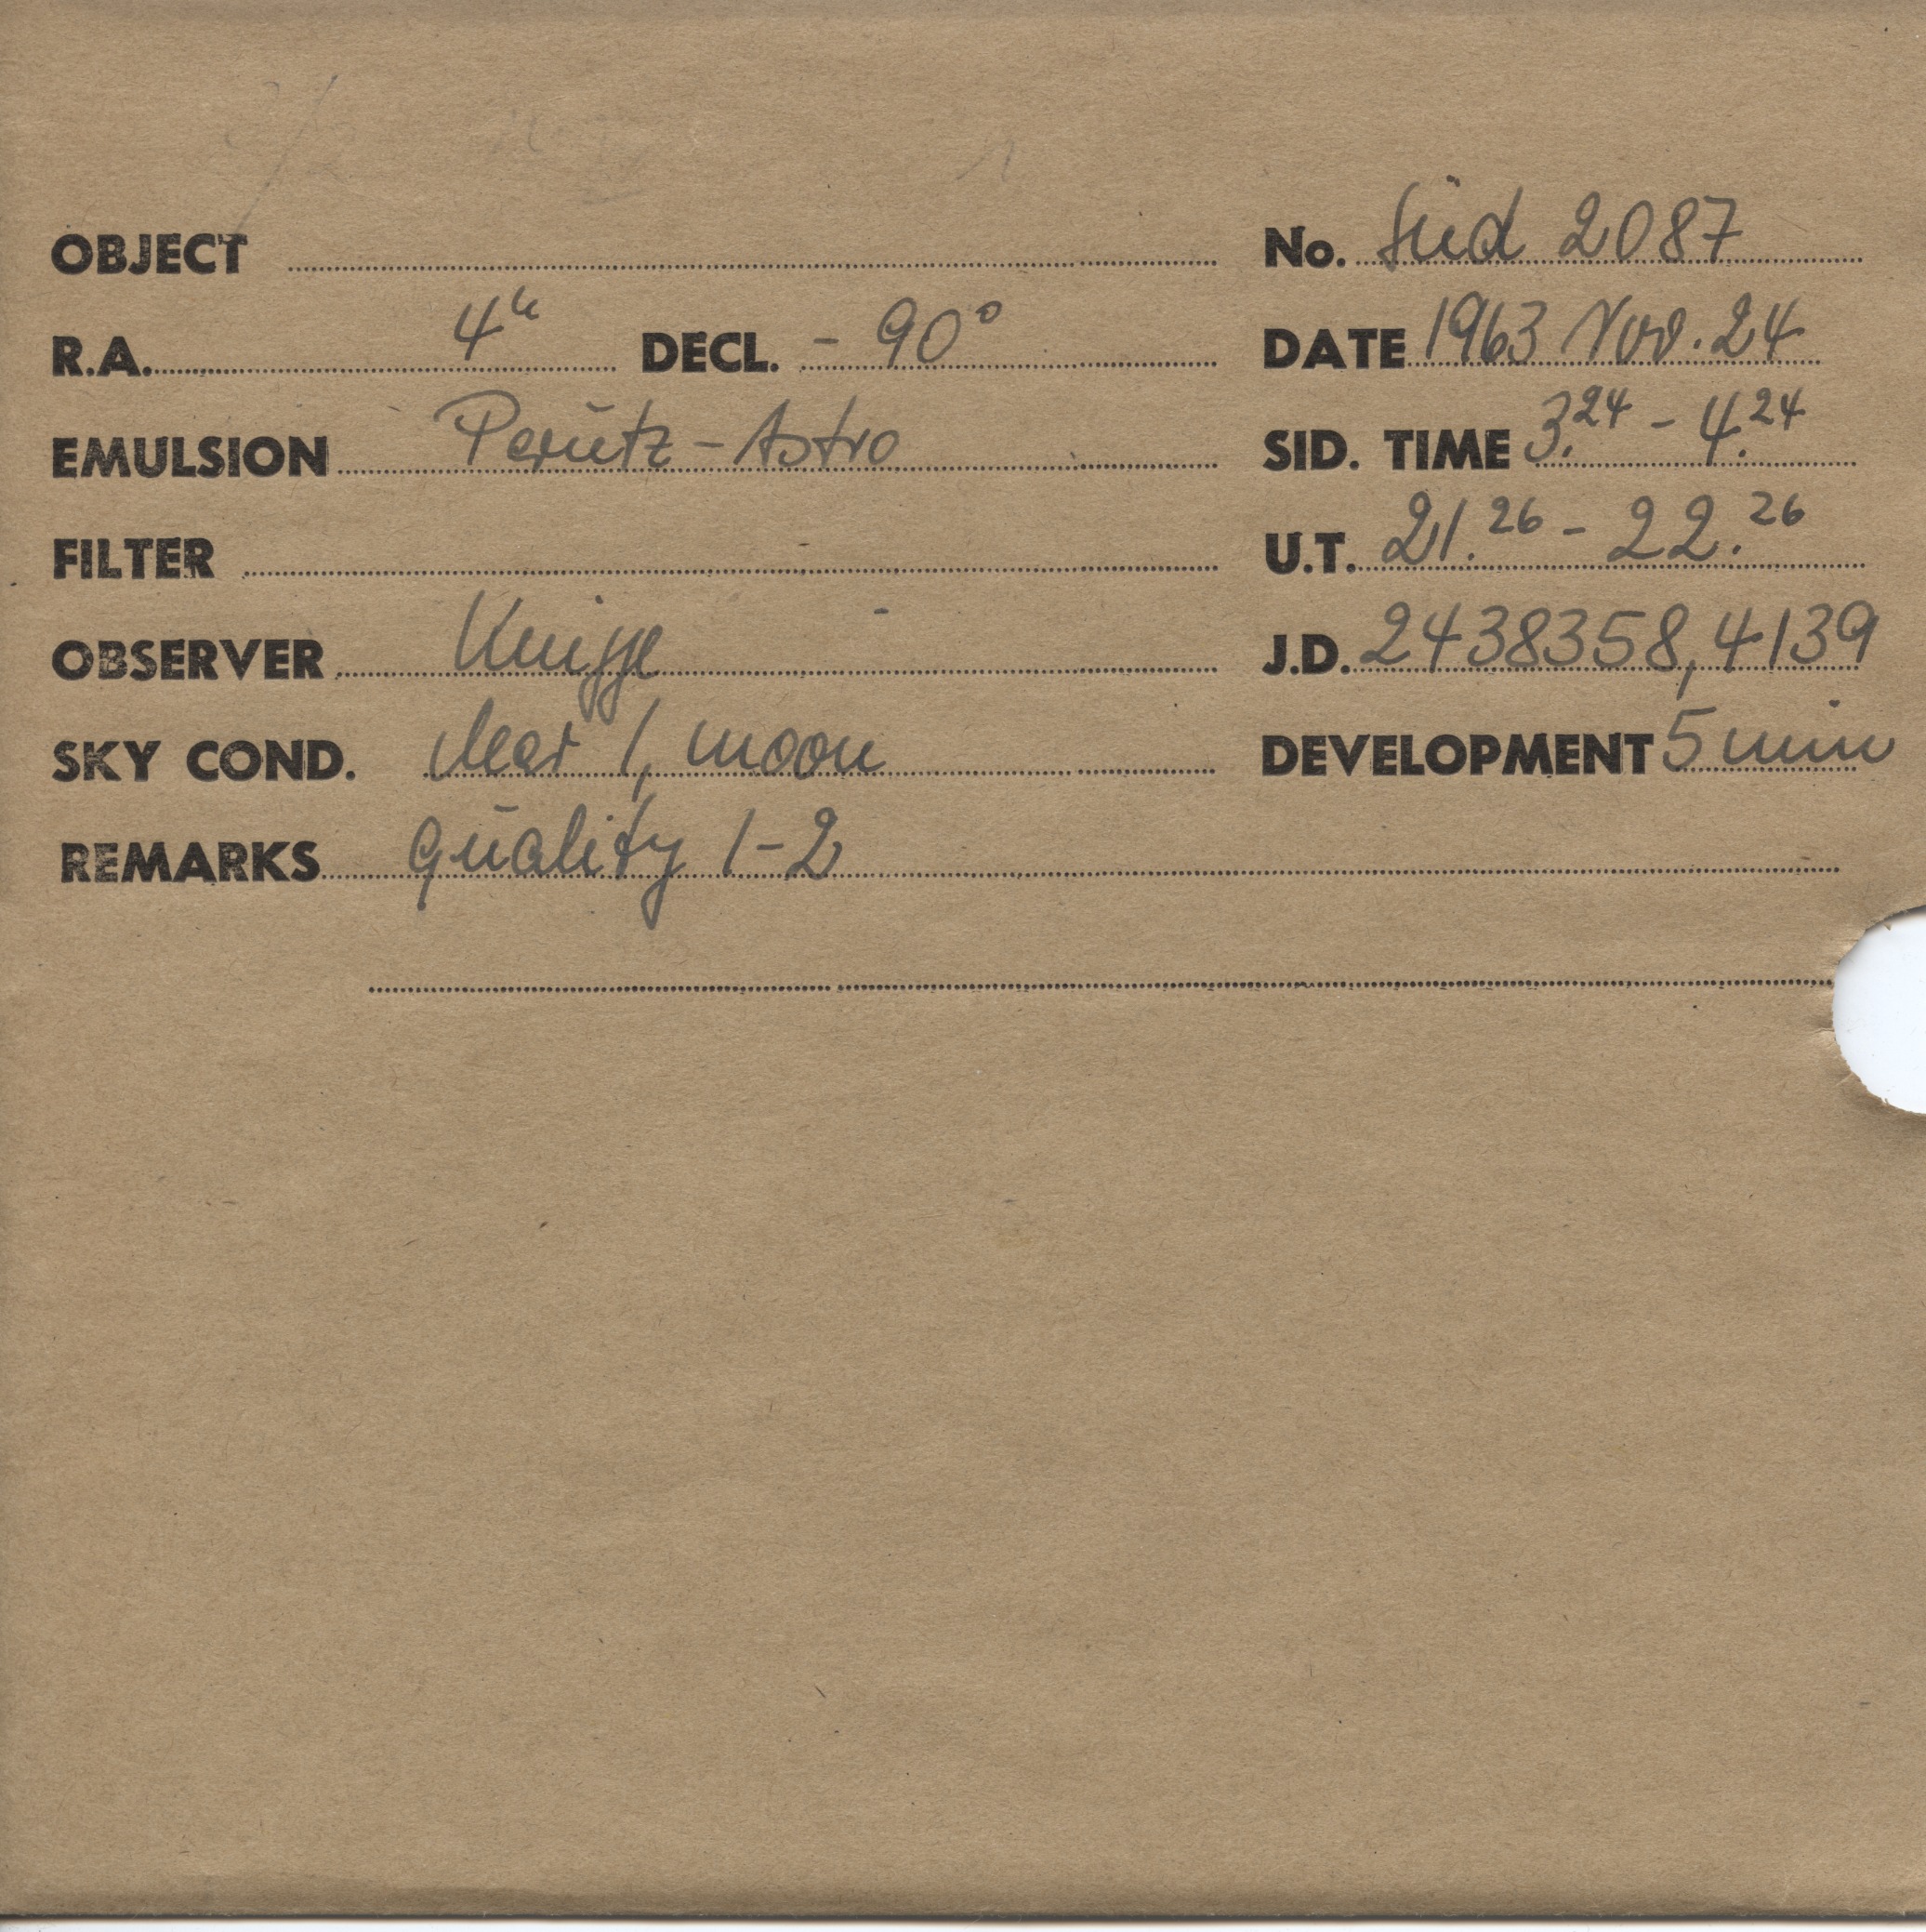 OBJECT No. Süd 2087
R.A. 4h DECL. - 90° DATE 1963 Nov. 24
EMULSION Perutz - Astro SID. TIME 3.24 - 4.24
FILTER U.T. 21.26 - 22.26
OBSERVER Knigge J.D. 2438358,4139
SKY COND. clear 1, moon DEVELOPMENT 5 min
REMARKS quality 1-2